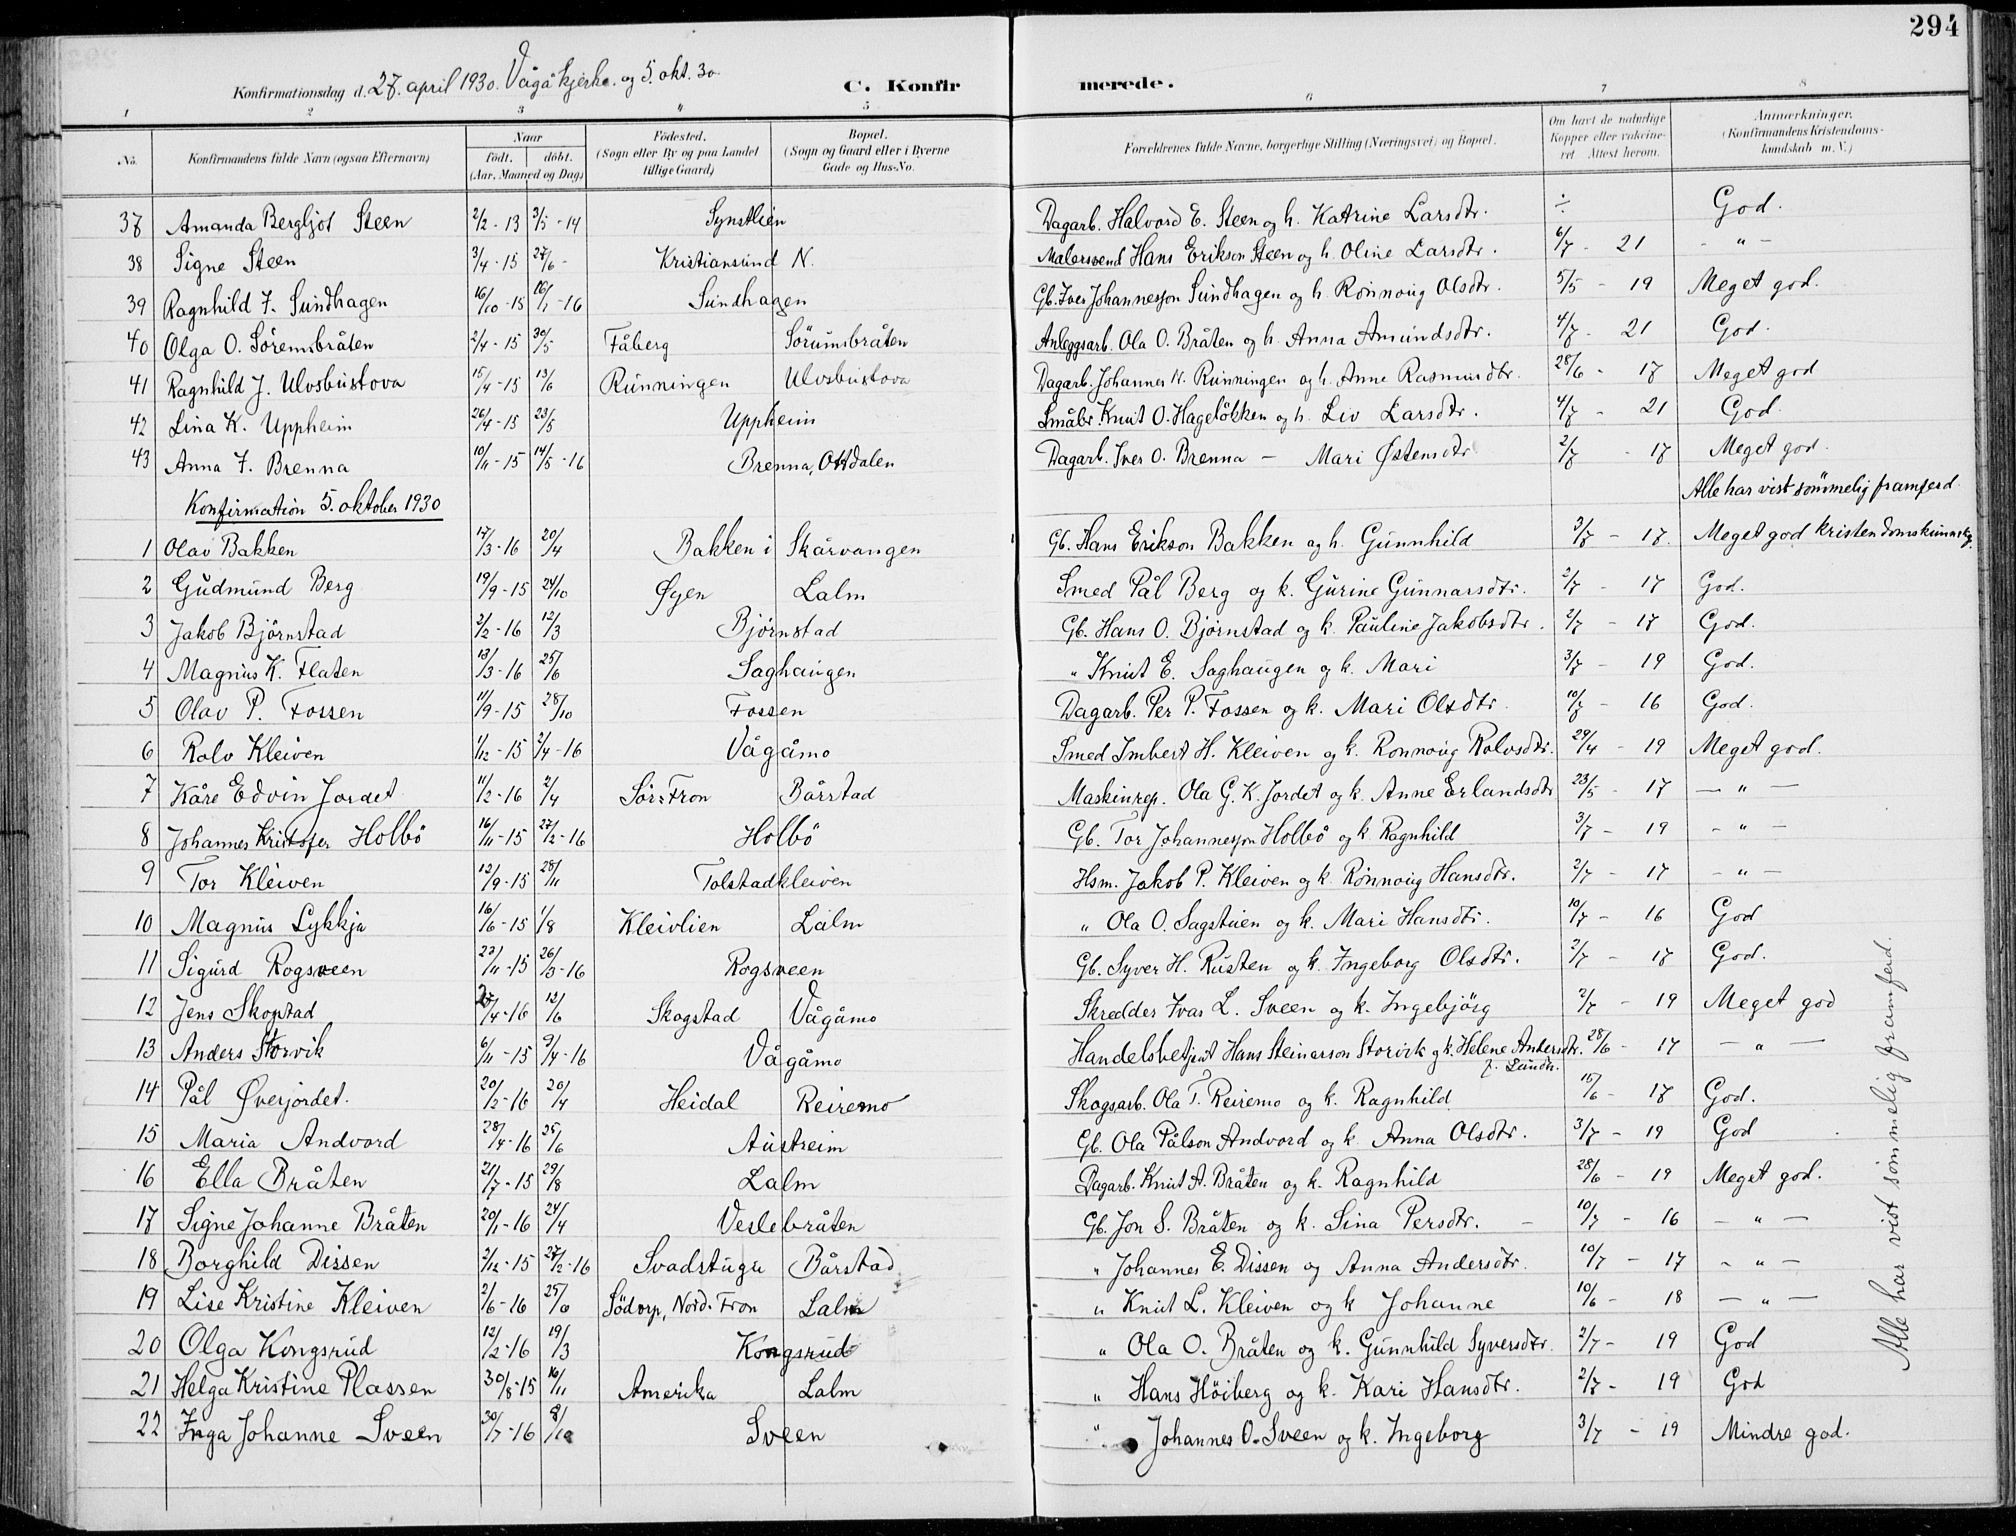 294
Konfirmationsdag d. 27. april 1930. Vågå kjerke. og 5. okt. 30.
C. Konfirmerede.
1 2 3 " 5 6 7 8
No. Konfirmandens fulde Navn (ogsaa Efternavn) Naar født. døbt. (Aar, Maaned og Dag) Fødested. (Sogn eller By og paa Landet tillige Gaard) Bopæl. (Sogn og Gaard eller i Byerne Gade og Hus-No. Forældrenes fulde Navne, borgerlige Stilling (Næringsvei) og Bopæl. Om havt de naturlige Kopper eller vakcineret. Attest herom. Anmærkninger. (Konfirmandens Kristendomskundskab m. V.)
37 Amanda Bergljot Steen 2/2-13 3/5-14 Synstlien Dagarb. Halvord E. Steen og h. Katrine Larsdtr. ÷ God.
38 Signe Steen 3/4-15 27/6- Kristiansund N. Malersvend Hans Erikson Steen og h. Oline Larsdtr. 6/7 - 21 - " -
39 Ragnhild I. Sundhagen 16/10-15 16/1-16 Sundhagen Gb. Iver Johannesson Sundhagen og h. Rønnaug Olsdtr. 5/5 - 19 Meget god.
40 Olga O. Sörumsbråten 2/4-15 30/5 Fåberg Sörumsbråten Anleggsarb. Ola O. Bråten og h. Anna Amundsdtr. 4/7 - 21 God.
41 Ragnhild J. Ulvsbustova 15/4-15 13/6 Runningen Ulvsbustova Dagarb. Johannes N. Runningen og h. Anne Rasmusdtr. 28/6 - 17 Meget god
42 Lina K. Uppheim 26/4-15 23/5 Uppheim Småbr. Knut O. Hageløkken og h. Liv Larsdtr. 4/7 - 21 God.
43 Anna I. Brenna 10/11-15 14/5-16 Brenna, Ottdalen Dagarb. Iver O. Brenna - Mari Østensdtr 2/7 - 17 Meget god.
Konfirmation 5. oktober 1930 Alle har vist sömmelig framferd.
1 Olav Bakken 17/3-16 20/4 Bakken i Skårvangen Gb. Hans Erikson Bakken og h. Gunnhild 3/7 - 17. Meget god kristendomskunnskp.
2 Gudmund Berg 19/9-15 24/10 Øyen Lalm Smed Pål Berg og k. Gurine Gunnarsdtr. 2/7 - 17 God.
3 Jakob Björnstad 2/2-16 12/3 Bjørnstad Gb. Hans O. Bjørnstad og k. Pauline Jakobsdtr. 2/7 - 17 God.
4 Magnus K. Flaten 13/3-16 25/6 Saghaugen " Knut E. Saghaugen og k. Mari 3/7 - 19 God.
5 Olav P. Fossen 11/9-15 28/10 Fossen Dagarb. Per P. Fossen og k. Mari Olsdtr. 10/7 - 16 God.
6 Rolv Kleiven 1/12-15 2/4-16 Vågåmo Smed Imbert H. Kleiven og k. Rønnaug Rolvsdtr. 29/4 - 19 Meget god.
7 Kåre Edvin Jordet 11/2-16 2/4 Sör-Fron Bårstad Maskinrep. Ola G. K. Jordet og k. Anne Erlandsdtr 23/5 - 17 - " -
8 Johannes Kristofer Holbö 16/11-15 27/2-16 Holbö Gb. Tor Johannesson Holbö og k. Ragnhild 3/7 - 19 - " -
9 Tor Kleiven 12/9-15 28/11 Tolstadkleiven Hsm. Jakob P. Kleiven og k. Rønnaug Hansdtr. 2/7 - 17 - " -
10 Magnus Lykkja 16/6-15 1/8 Kleivlien Lalm " Ola O. Sagstuen og k. Mari Hansdtr. 10/7 - 16 God
11 Sigurd Rogsveen 23/11-15 26/3-16 Rogsveen Gb. Syver H. Rusten og k. Ingeborg Olsdtr. 2/7 - 17 God.
12 Jens Skogstad 27/4-16 12/6 Skogstad Vågåmo Skredder Ivar L. Sveen og k. Ingebjörg 2/7 - 19 Meget god
13 Anders Storvik 6/11-15 9/4-16 Vågåmo Handelsbetjent Hans Steinarson Storvik og k. Helene Andersdtr. f. Lundh. 28/6 - 17 - " -
14 Pål Øverjordet. 20/2-16 20/4 Heidal Reiremo Skogsarb. Ola T. Reiremo og k. Ragnhild 15/6 - 17 God.
15 Maria Andvord 28/4-16 25/6 Austreim Gb. Ola Pålson Andvord og k. Anna Olsdtr. 3/7 - 19 God
16 Ella Bråten 21/7-15 29/8 Lalm Dagarb. Knut A. Bråten og k. Ragnhild 28/6 - 19 Meget god.
17 Signe Johanne Bråten 20/1-16 24/4 Veslebråten Gb. Jon S. Bråten og k. Sina Persdtr. 10/7 - 16 - " -
18 Borghild Dissen 2/12-15 27/2-16 Svadstugu Bårstad " Johannes E. Dissen og Anna Andersdtr. 10/7 - 17 - " -
19 Lise Kristine Kleiven 2/6-16 25/6 Södorp, Nord-Fron Lalm " Knut L. Kleiven og k Johanne 10/6 - 18 - " -
20 Olga Kongsrud 12/2-16 19/3 Kongsrud " Ola O. Bråten og k. Gunnhild Syversdtr. 2/7 - 19 God
21 Helga Kristine Plassen 30/8-15 16/11 Amerika Lalm " Hans Höiberg og k. Kari Hansdtr. 2/7 - 19 God
22 Inga Johanne Sveen 30/7-16 8/10 Sveen " Johannes O. Sveen og k. Ingeborg 3/7 - 19 Mindre god.
Alle har vist sömmelig framferd.